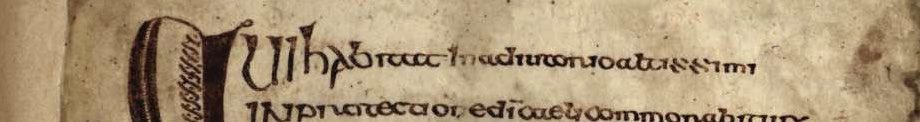 QUIhabitat inadiutorioaltissimi
INprotectionedīcaelicommorabitur